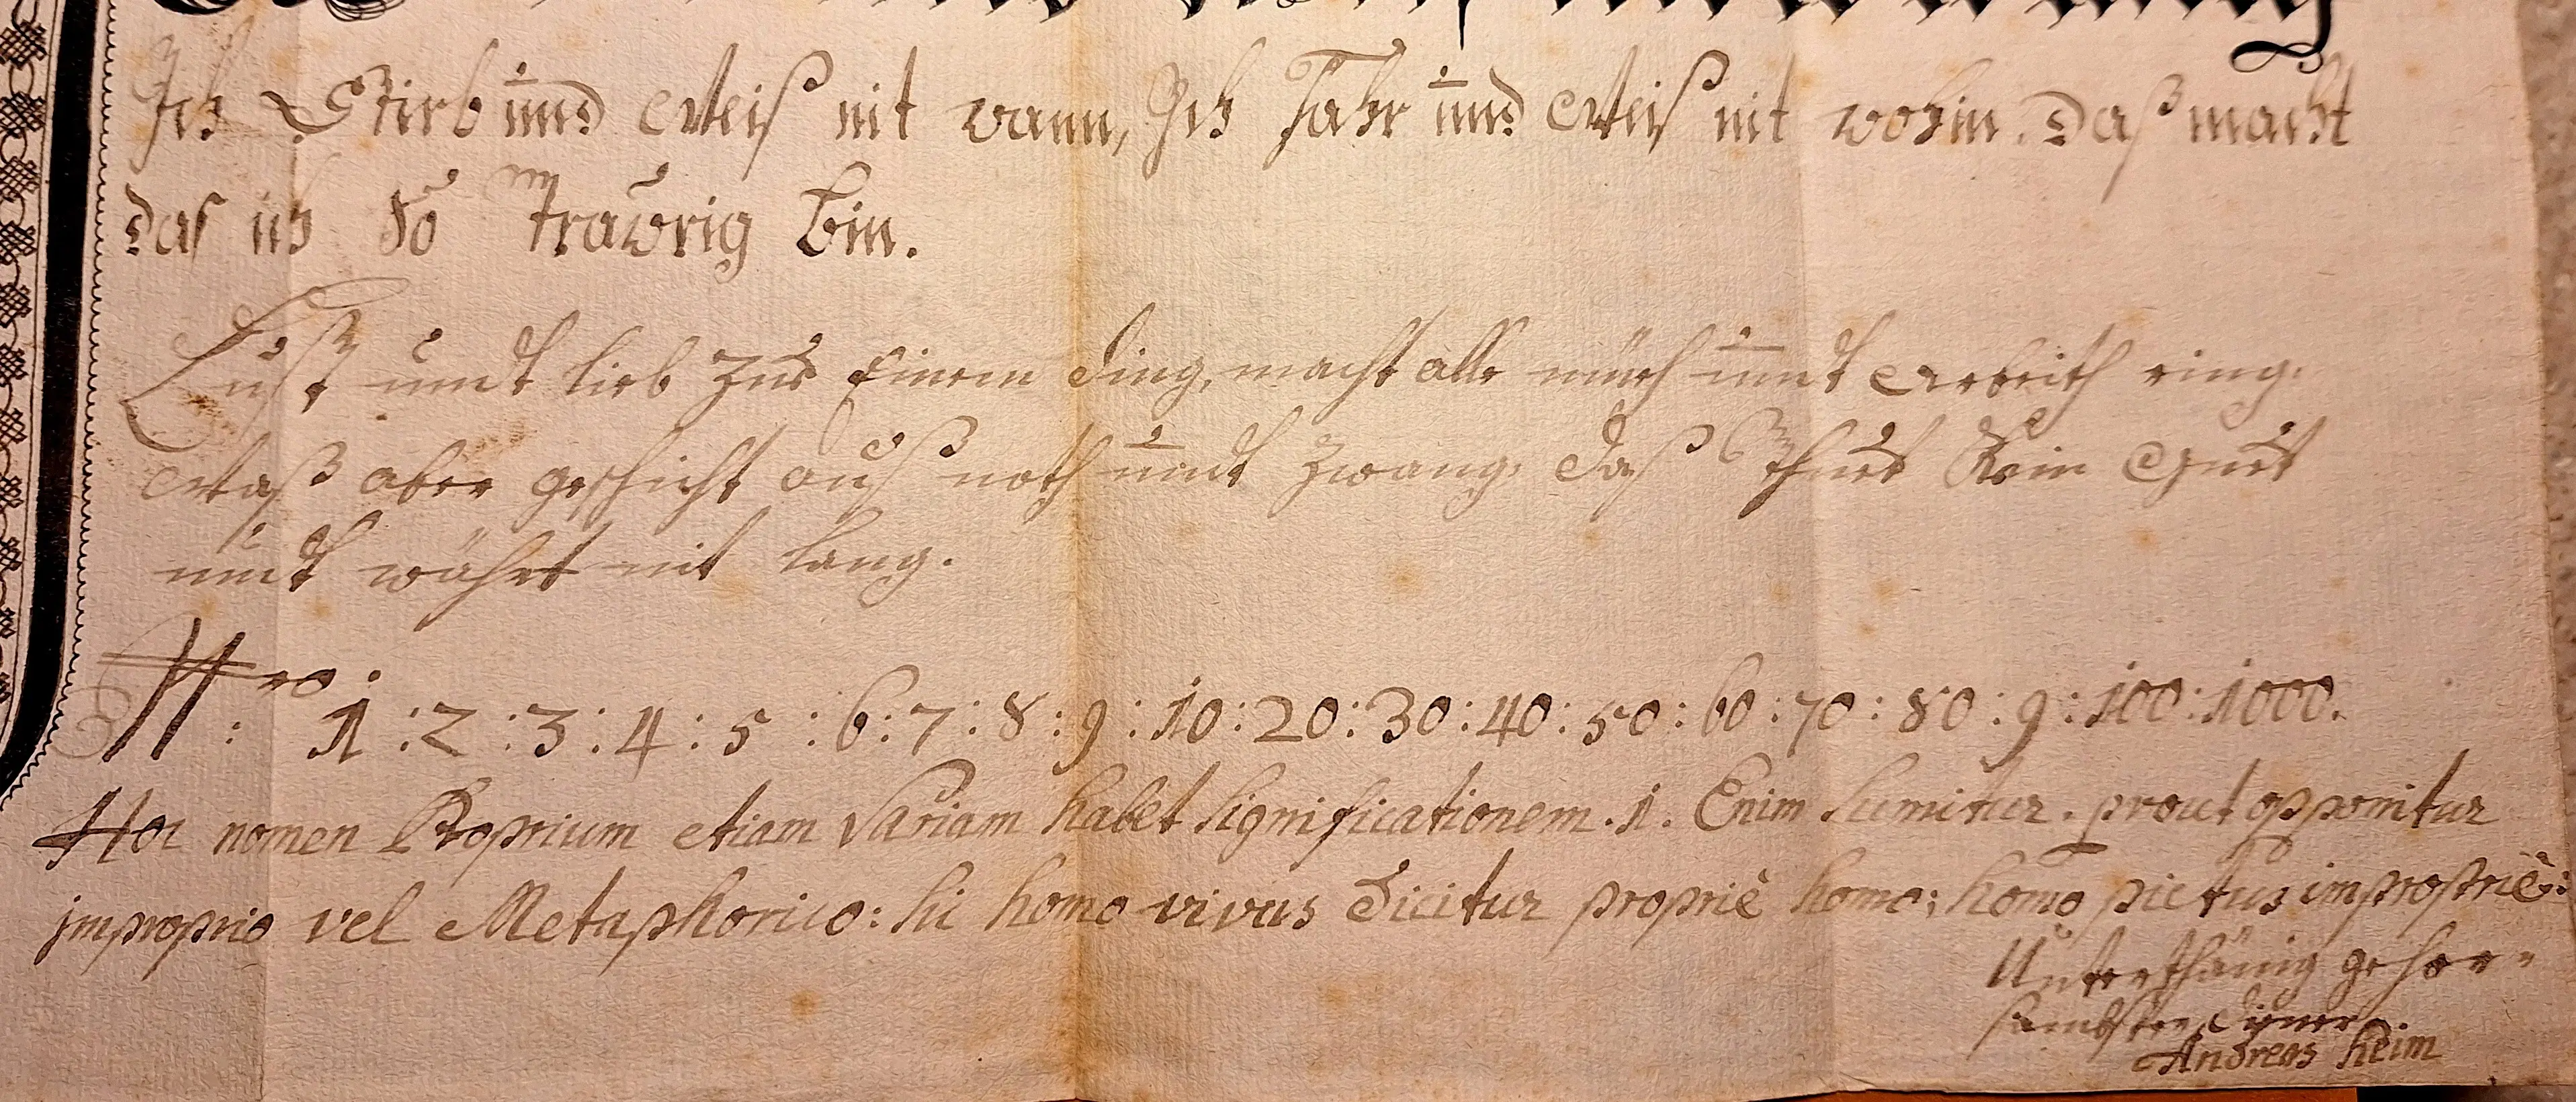 Ich Stirb und Weiß nit wann, Ich Fahr und Weiß nit wohin. Daß macht
das ich So Traurig bin.
Lust undt lieb zur Einem ding, macht alle müeh undt Arbeith ring.
Waß aber geschicht auß noth undt Zwang, daß Thuet Kein Guet
undt währt nit lang.
Nro: 1 : 2 : 3 : 4 : 5 : 6 : 7 : 8 : 9 : 10 : 20 : 30 : 40 : 50 : 60 : 70 : 80 : 9 : 100 : 1000.
Hoc nomen Proprium etiam Variam habet Significationem. 1. Enim Sumitur. prout opponitur
improprio vel Metaphorico: Si homo vivus Dicitur propriè homo; homo pictus impropriè:
Unterthänig gehor=
sambster Diener
Andreas Heim